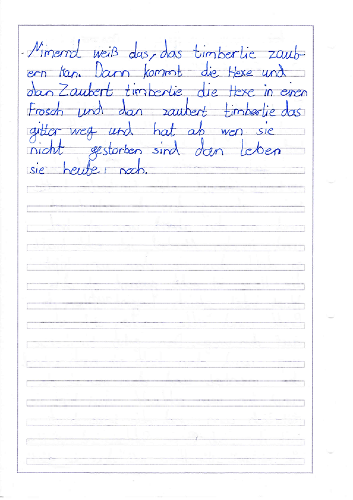 Nimemd weiß das, das timberlie zaub-
ern kan. Dann kommt die Hexe und
dan Zaubert timberlie die Hexe in einen
Frosch und dan zaubert timberlie das
gitter weg und hat ab wen sie
nicht gestorben sind dan leben
sie heute noch.